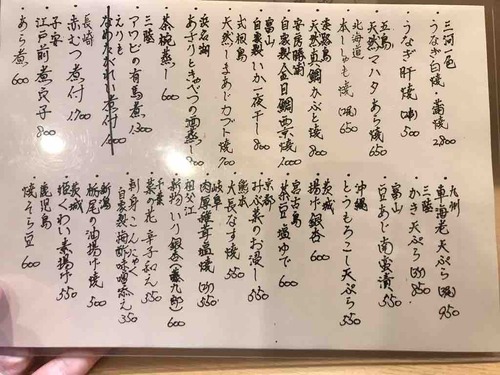 三河一色
うなぎ白焼・蒲焼 2800
うなぎ肝焼(1本) 500
五島
天然マハタあら焼 650
北海道
本ししゃも焼(2尾) 650
淡路島
天然真鯛かぶと焼 800
安房勝浦
自家製金目鯛西京焼 1000
富山
自家製いか一夜干し 800
式根島
天然しまあじカブト焼 700
浜名湖
あさりときゃべつの酒蒸し 800
茶碗蒸し 600
三陸
アワビの有馬煮 1300
えりも
なめたがれい煮付
長崎
赤むつ煮付 1700
子安
江戸前煮穴子 800
あら煮 600
九州
車海老天ぷら(2尾) 950
三陸
かき天ぷら(2ヶ) 850
富山
豆あじ南蛮漬 550
沖縄
とうもろこし天ぷら 550
茨城
揚げ銀杏 600
宮古島
茶豆塩ゆで 600
京都
みぶ菜のお浸し 550
熊本
大長なす焼 550
岐阜
肉厚椎茸塩焼(2ヶ) 550
祖父江
新物いり銀杏(藤九郎) 600
千葉
菜の花辛子和え 550
刺身こんにゃく
自家製酢味噌添え 350
新潟
栃尾の油揚げ焼 500
茨城
姫くわい素揚げ 550
鹿児島
焼そら豆 600